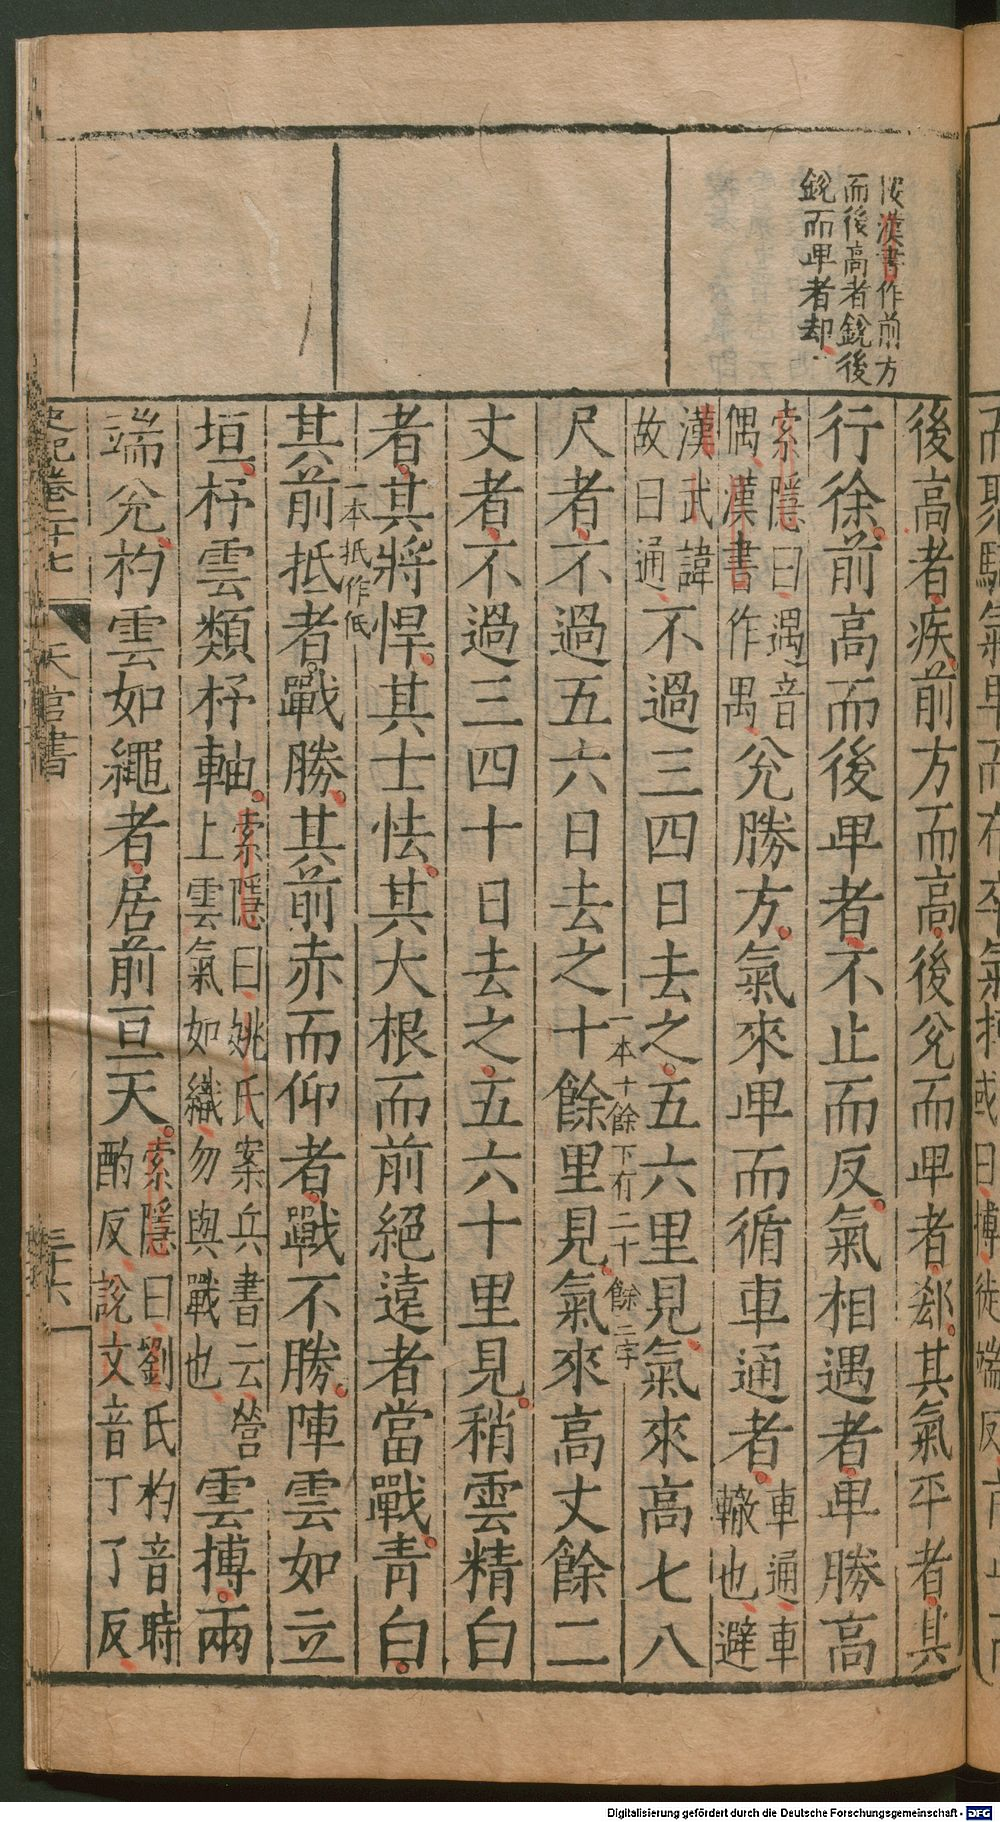 按漢書作前方
而後高者銳後
銳而卑者却
後高者疾前方而高後兊而卑者郄其氣平者其
行徐前高而後卑者不止而反氣相遇者卑勝高
索隱曰遇音
偶漢書作禺
兊勝方氣來卑而循車通者
車通車
轍也避
漢武諱
故曰通
不過三四日去之五六里見氣來高七八
一本十餘下有二十餘三字
尺者不過五六日去之十餘里見氣來高丈餘二
丈者不過三四十日去之五六十里見稍雲精白
者其將悍其士怯其大根而前絕遠者當戰青白
一本抵作低
其前抵者戰勝其前赤而仰者戰不勝陣雲如立
垣杼雲類杼軸
索隱曰姚氏案兵書云營
上雲氣如織勿與戰也
雲摶兩
端兊杓雲如繩者居前亘天
索隱曰劉氏杓音時
酌反說文音丁了反
史記卷二十七
天官書
三十六
Digitalisierung gefördert durch die Deutsche Forschungsgemeinschaft - DFG